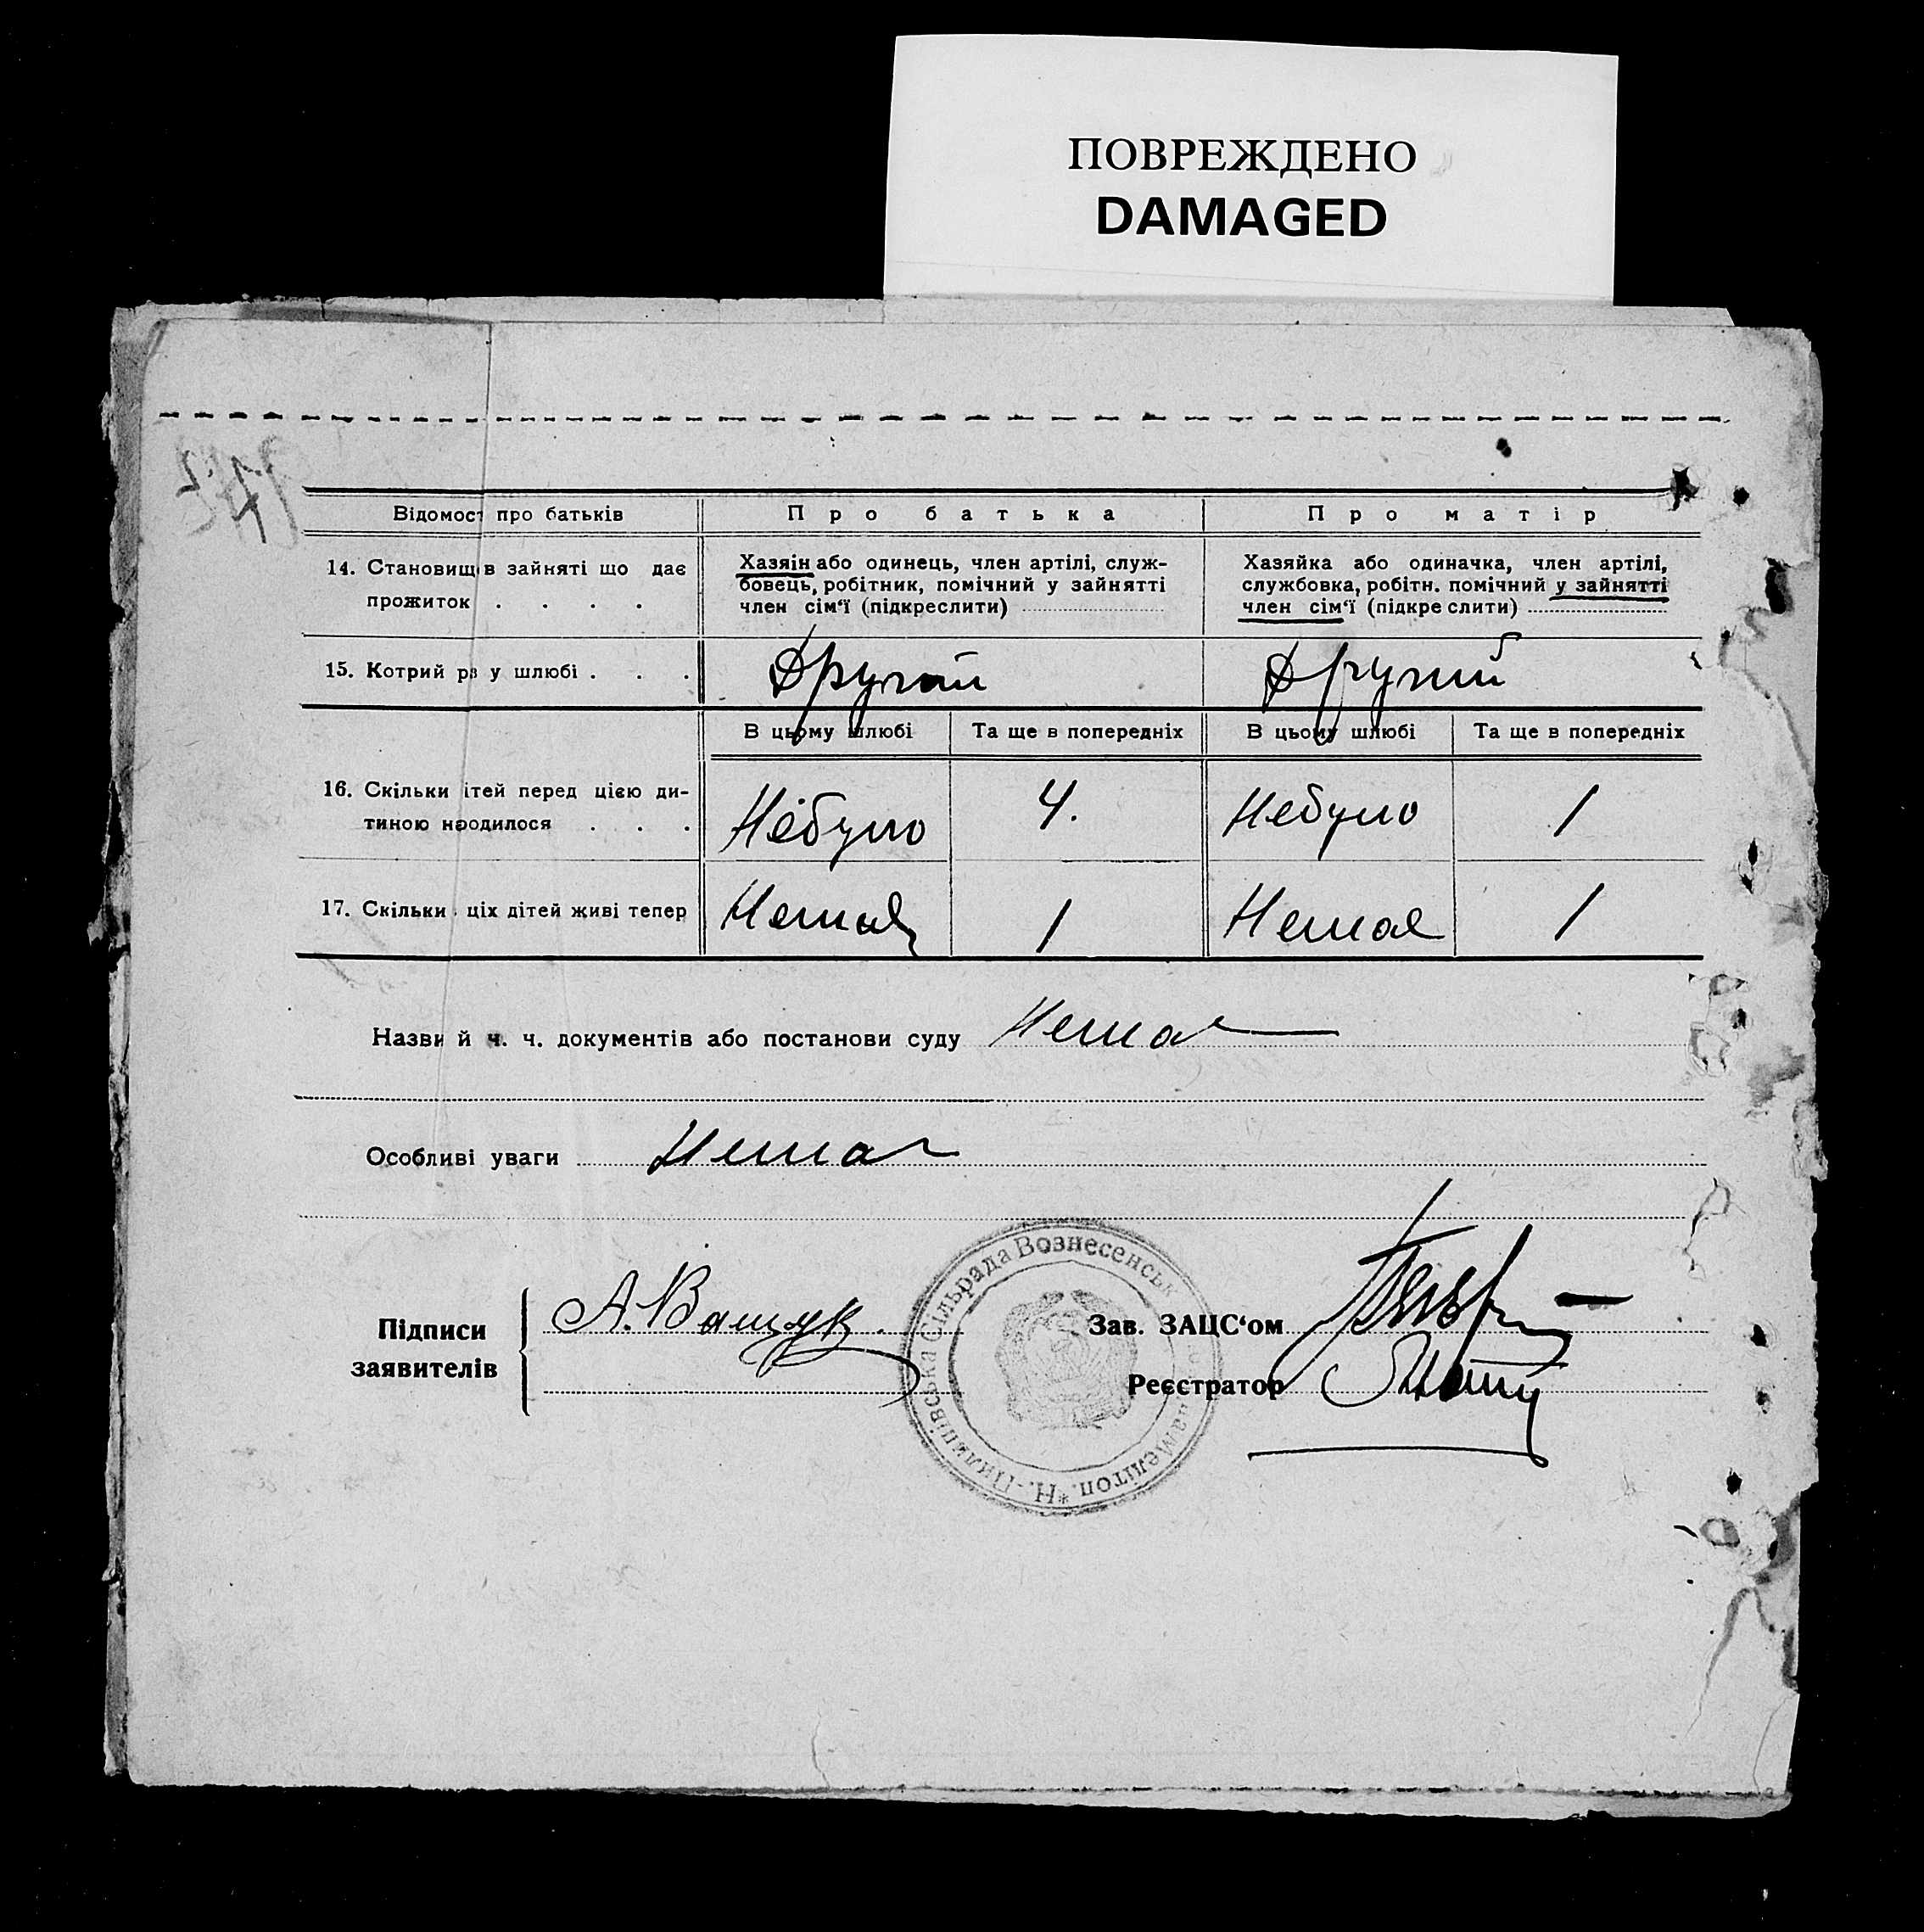 ПОВРЕЖДЕНО
DAMAGED
Відомост про батьків
Про батька
Про матір
14. Становищ в зайняті що дає
прожиток . . . .
Хазяін або одинець, член артілі, служ-
бовець, робітник, помічний у зайнятті
член сім‘ї (підкреслити)
Хазяйка або одиначка, член артілі,
службовка, робітн. помічний у зайнятті
член сім‘ї (підкреслити)
15. Котрий ра у шлюбі . . .
Другий
Другий
В цьому шлюбі
Та ще в попередніх
В цьому шлюбі
Та ще в попередніх
16. Скільки ітей перед цією ди-
тиною народилося . . .
Небуло
4.
Небуло
1
17. Скільки ціх дітей живі тепер
Немає
1
Немає
1
Назви й ч. ч. документів або постанови суду Немає
Особливі уваги Немає
Підписи
заявителів
А. Ващук.
Зав. ЗАЦС‘ом
Реєстратор
Н.-Пилипівська Сільрада Вознесенськ Мелітоп. *